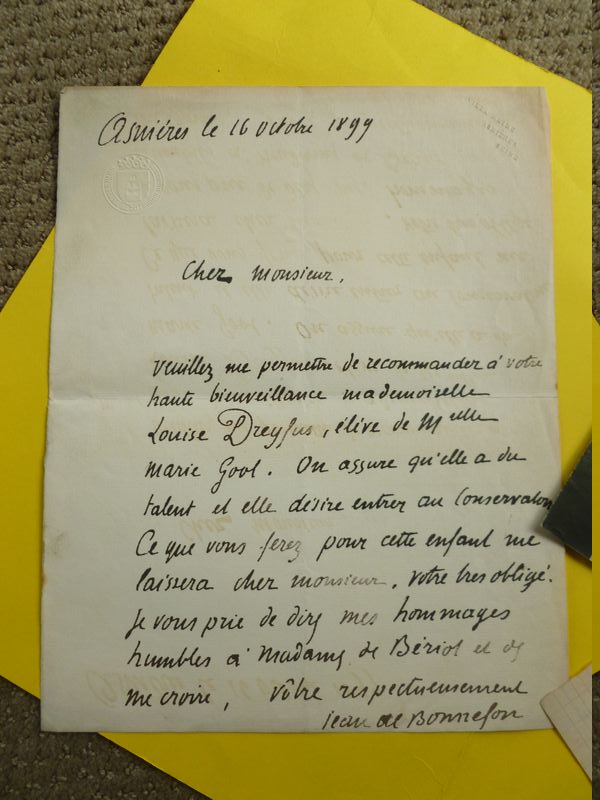 Asnières le 16 octobre 1899
Cher Monsieur,
veuillez me permettre de recommander à votre
haute bienveillance mademoiselle
Louise Dreyfus, élève de Melle
Marie Gool. On assure qu'elle a du
talent et elle désire entrer au Conservatoi
Ce que vous ferez pour cette enfant me
laissera cher monsieur, votre très obligé.
Je vous prie de dire mes hommages
humbles à Madame de Bériot et de
me croire, vôtre respectueusement
Jean de Bonnefon